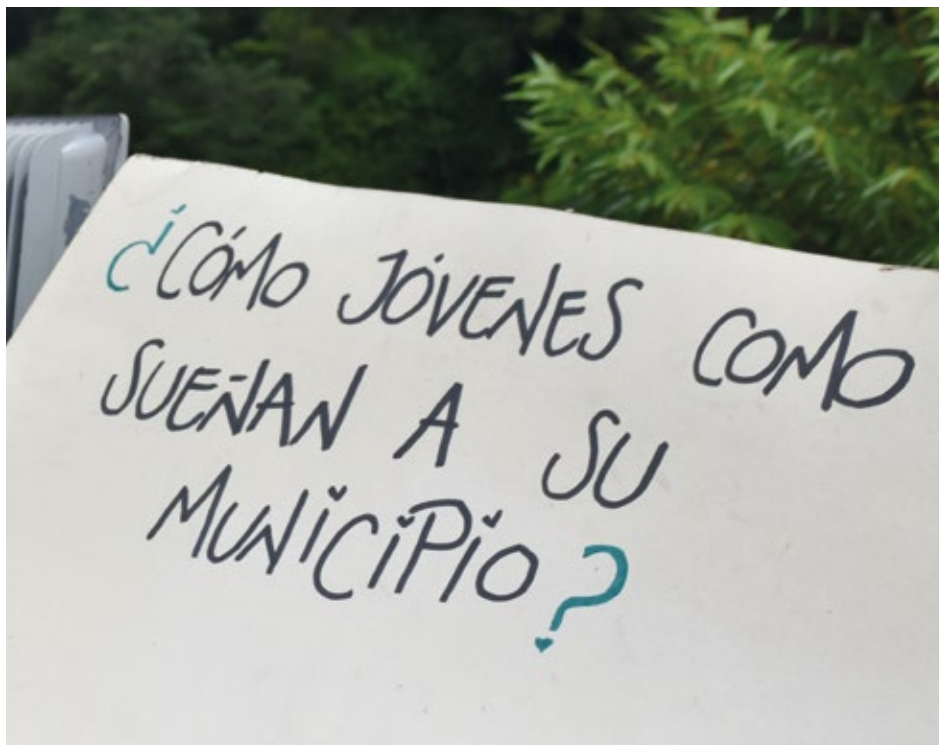 ¿CÓMO JÓVENES COMO
SUEÑAN A SU
MUNICIPIO?